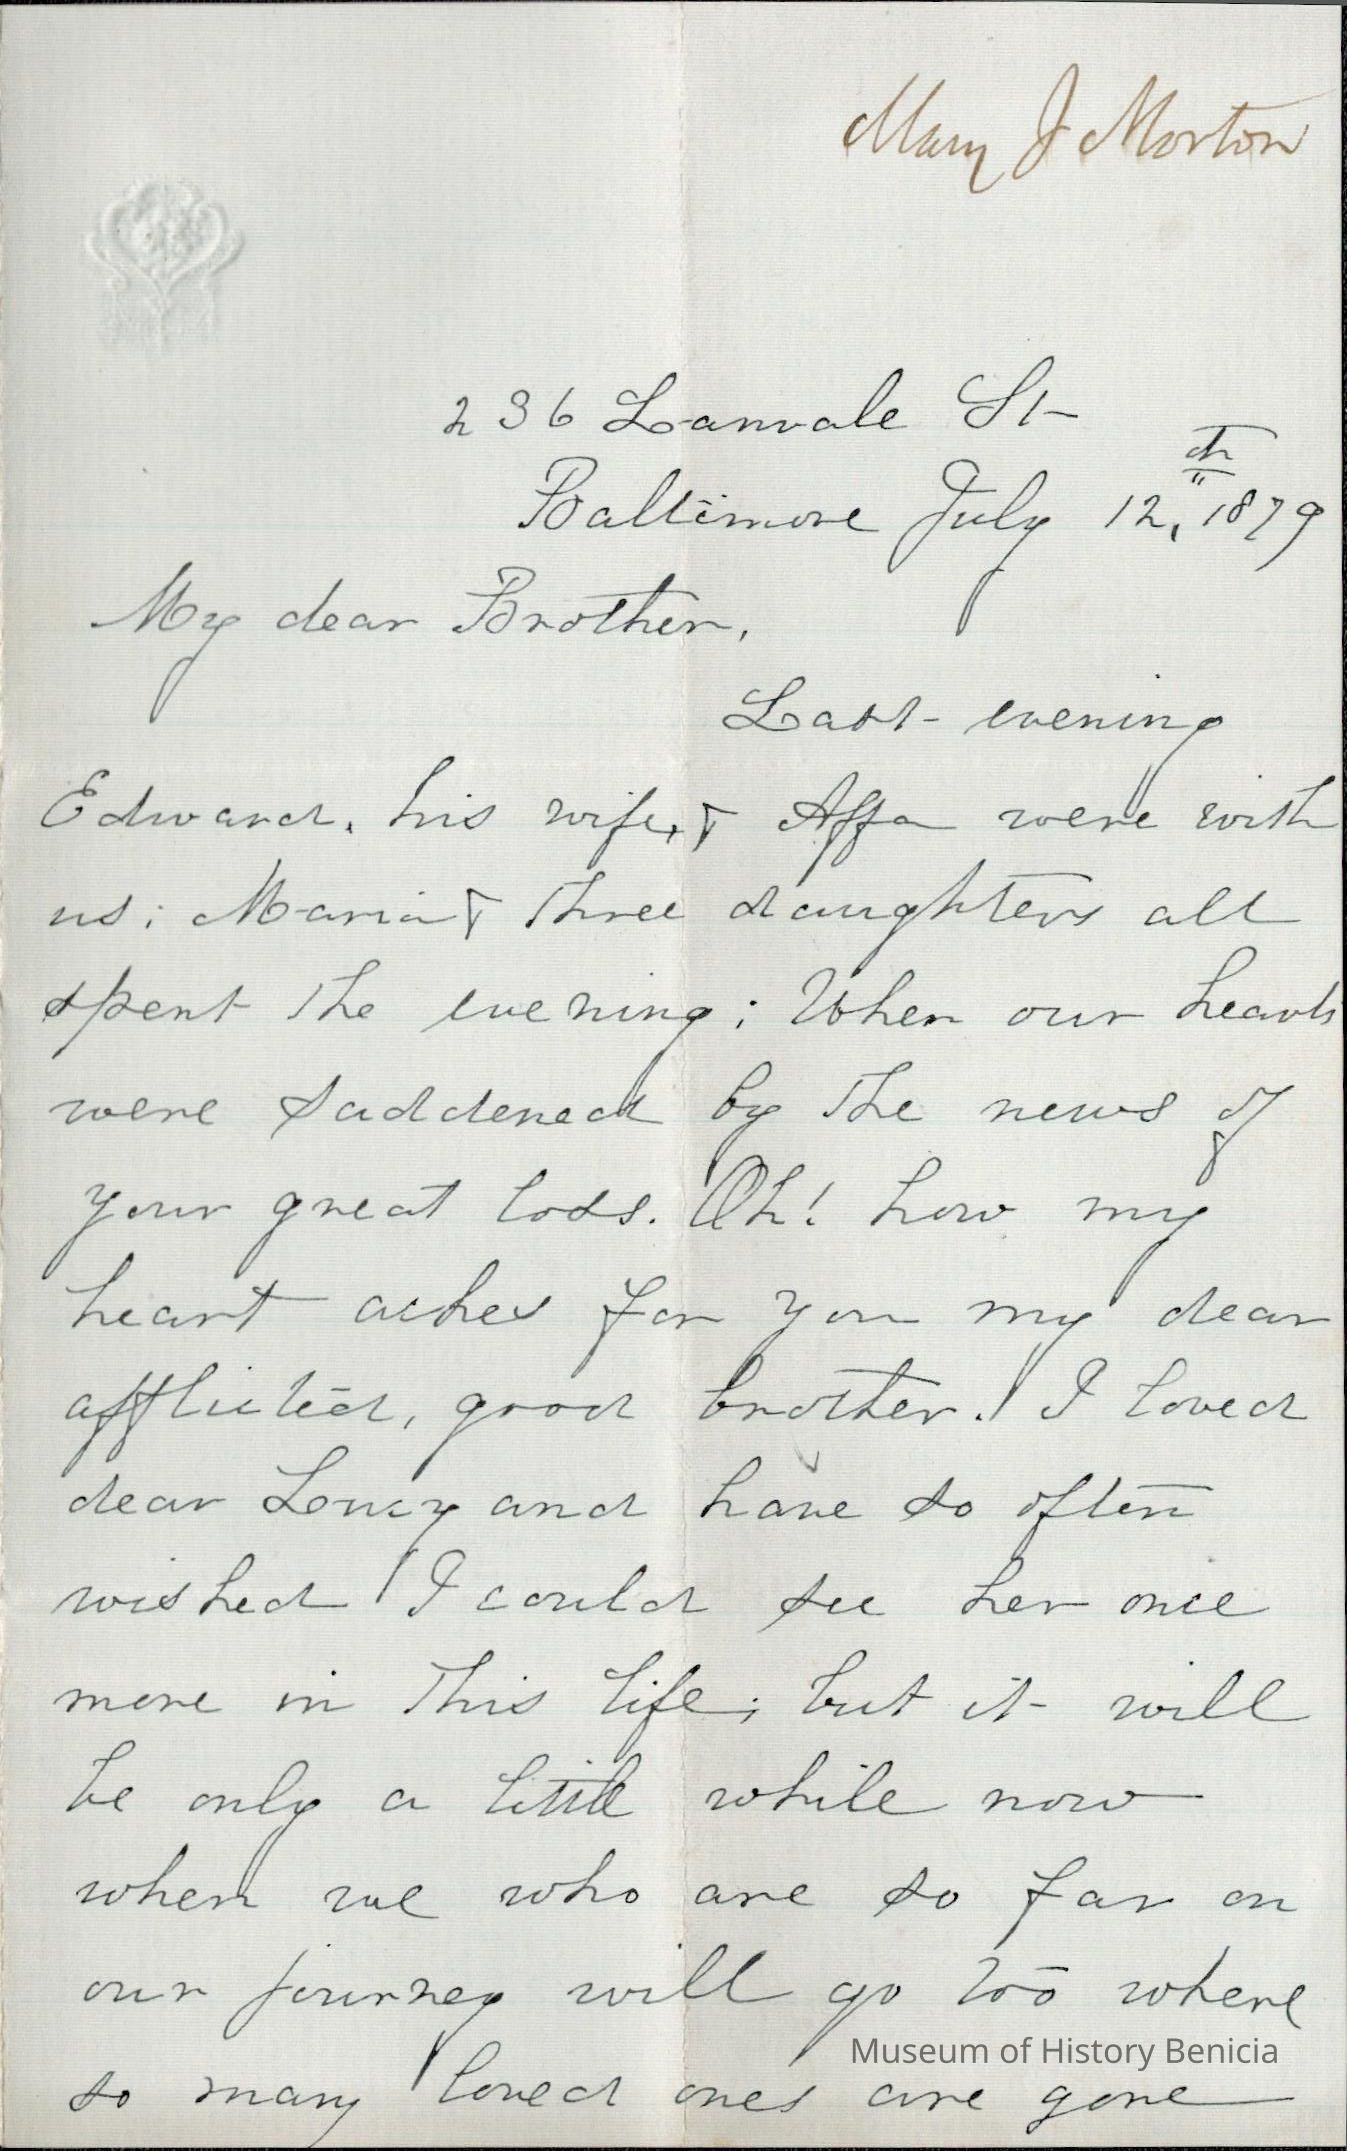 Mary J Morton
236 Lanvale St
Baltimore July 12, th 1879
My dear Brother,
Last evening
Edward, his wife, & Affa were with
us; Maria & three daughters all
spent the evening; When our hearts
were saddened by the news of
your great loss. Oh! how my
heart aches for you my dear
afflicted, good brother! I loved
dear Loucy and have so often
wished I could see her once
more in this life; but it will
be only a little while now
when we who are so far on
our journey will go too where
Museum of History Benicia
so many loved ones are gone